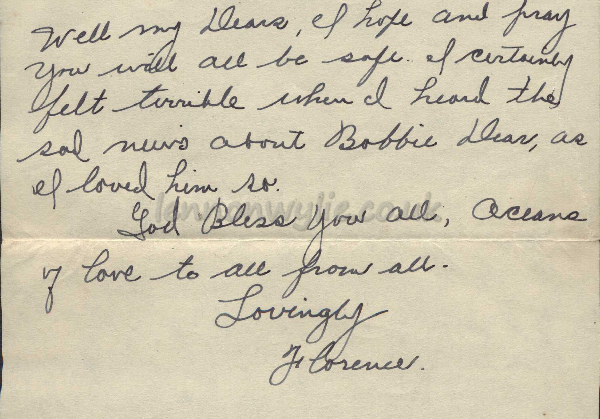 Well my Dears, I hope and pray
you will all be safe. I certainly
felt terrible when I heard the
sad news about Bobbie Dear, as
I loved him so.
lennonwylie.co.uk
God Bless you all, Oceans
of love to all from all.
Lovingly
Florence.